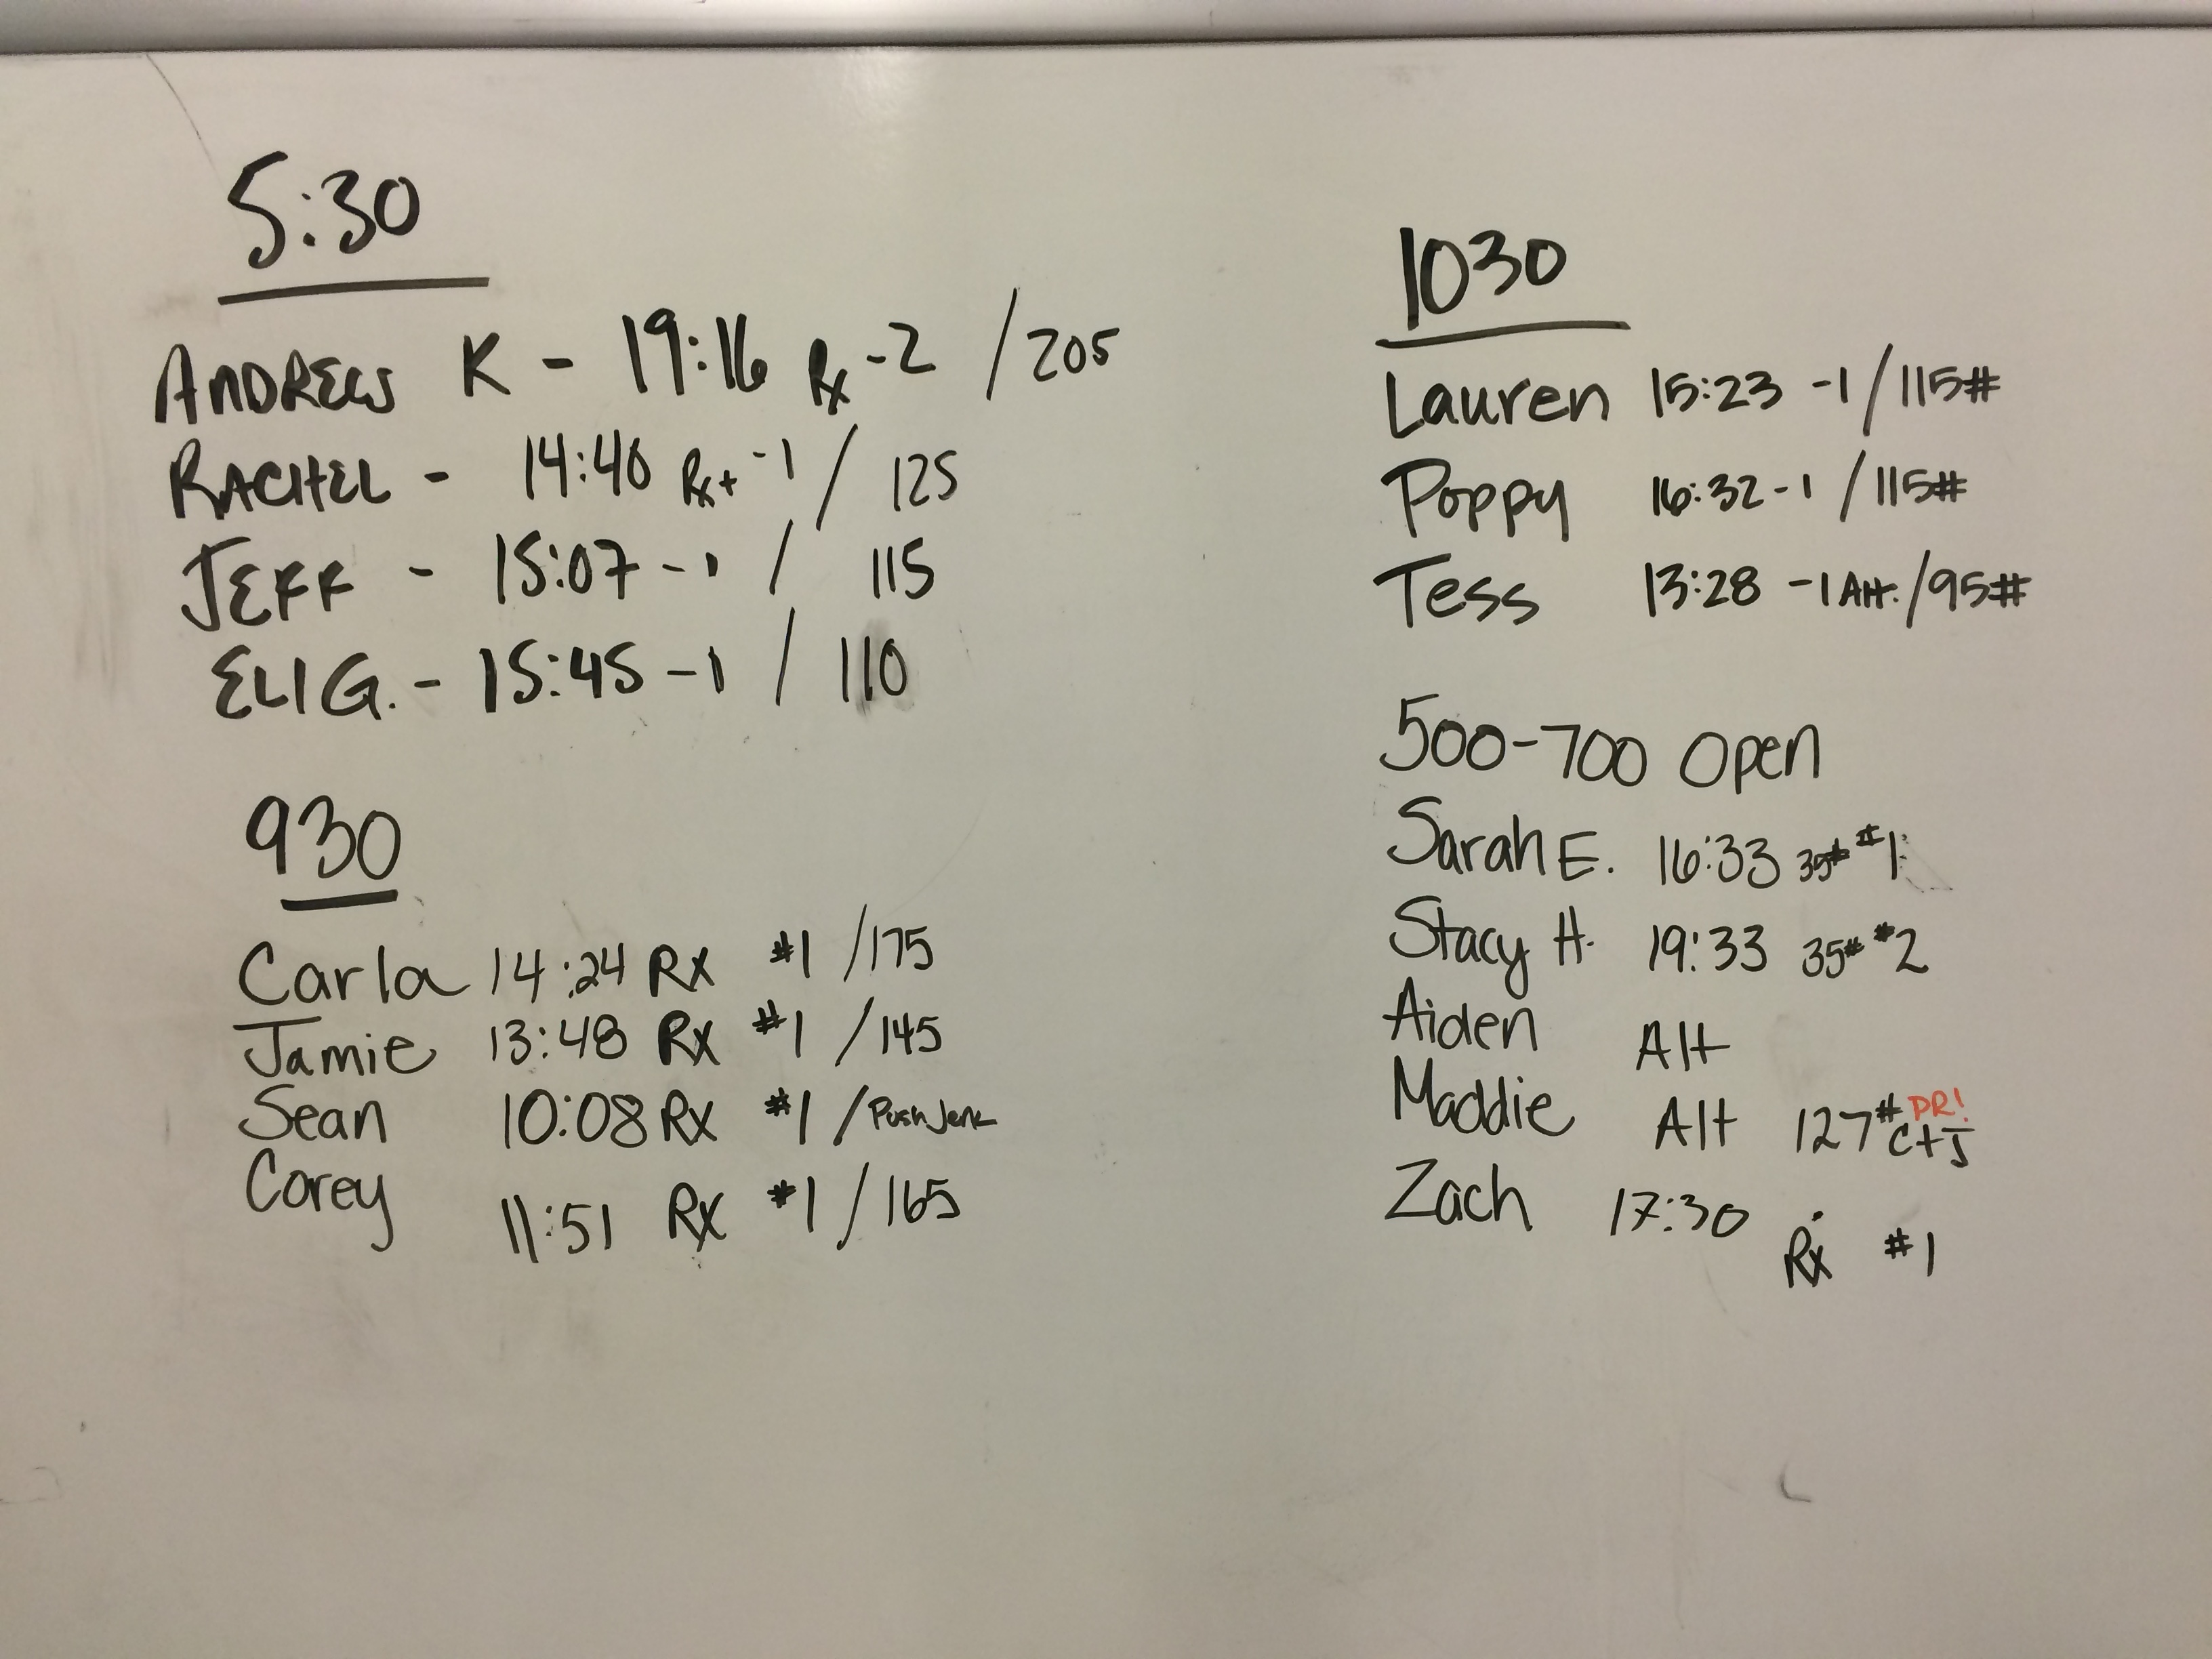 5:30
ANDREW K - 19:16 Rx -2 / 205
RACHEL - 14:40 Rx+ -1 / 125
JEFF - 15:07 -1 / 115
ELI G. - 15:45 -1 / 110
930
Carla 14:24 RX #1 /175
Jamie 13:48 RX #1 /145
Sean 10:08 RX #1 / Push Jerk
Corey 11:51 RX #1 / 165
1030
Lauren 15:23 -1 / 115#
Poppy 16:32 -1 / 115#
Tess 13:28 -1 Alt. / 95#
500-700 Open
Sarah E. 16:33 35# #1
Stacy H. 19:33 35# #2
Aiden Alt
Maddie Alt 127# C+J PR!
Zach 17:30 Rx #1